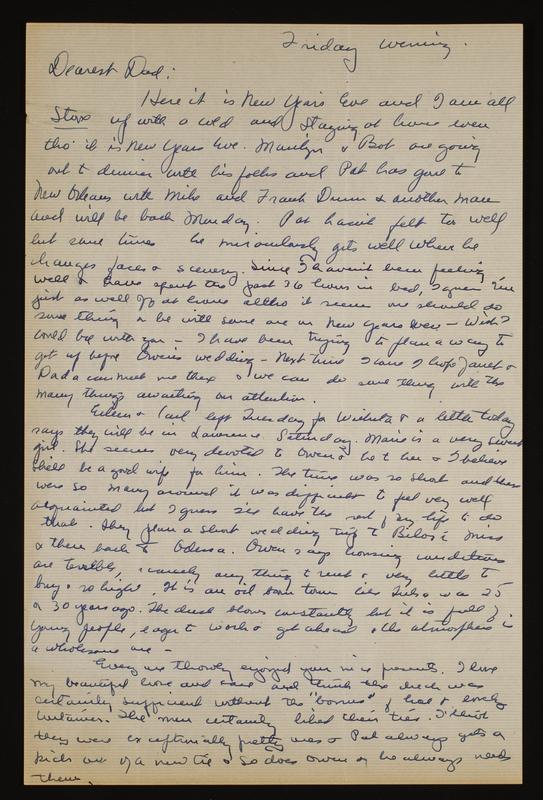 Friday evening.
Dearest Dad:
Here it is New Years Eve and I am all
Stove up with a cold and staying at home even
tho' it is New Years Eve. Marilyn & Bob are going
out to dinner with his folks and Pat has gone to
New Orleans with Mike and Frank Dunn & another man
and will be back Monday. Pat hasn't felt too well
but some times he miraculously gets well when he
changes faces & scenery. Since I haven't been feeling
well & have spent the past 36 hours in bed, I guess I'm
just as well off at home altho it seems one should do
some thing or be with some one on New Years Eve - Wish I
could be with you - I have been trying to plan a way to
get up before Owen's wedding - Next time I come I hope Janet &
Dad a can meet me there & we can do some thing with the
many things awaiting our attention.
Eileen & Carl left Tuesday for Wichita & a letter today
says they will be in Lawrence Saturday. Marie is a very sweet
girl. She seems very devoted to Owen & he to her & I believe
she'll be a good wife for him. The time was so short and there
were so many around it was difficult to feel very well
acquainted but I guess I'll have the rest of my life to do
that. They plan a short wedding trip to Biloxi Miss
& then back to Odessa. Owen says housing conditions
are terrible, scarcely any thing to rent & very little to
buy & so high. It is an oil boom town like Tulsa was 25
or 30 years ago. The dust blows constantly but it is full of
young people, eager to work & get ahead & the atmosphere is
a wholesome one -
Every one thoroly enjoyed your nice presents. I love
my beautiful hose and and think the check was
certainly sufficient without the "bonus" of hose & lovely
container. The men certainly liked their ties. I thot
they were exceptionally pretty ones & Pat always gets a
kick out of a new tie & so does Owen & he always needs
them.